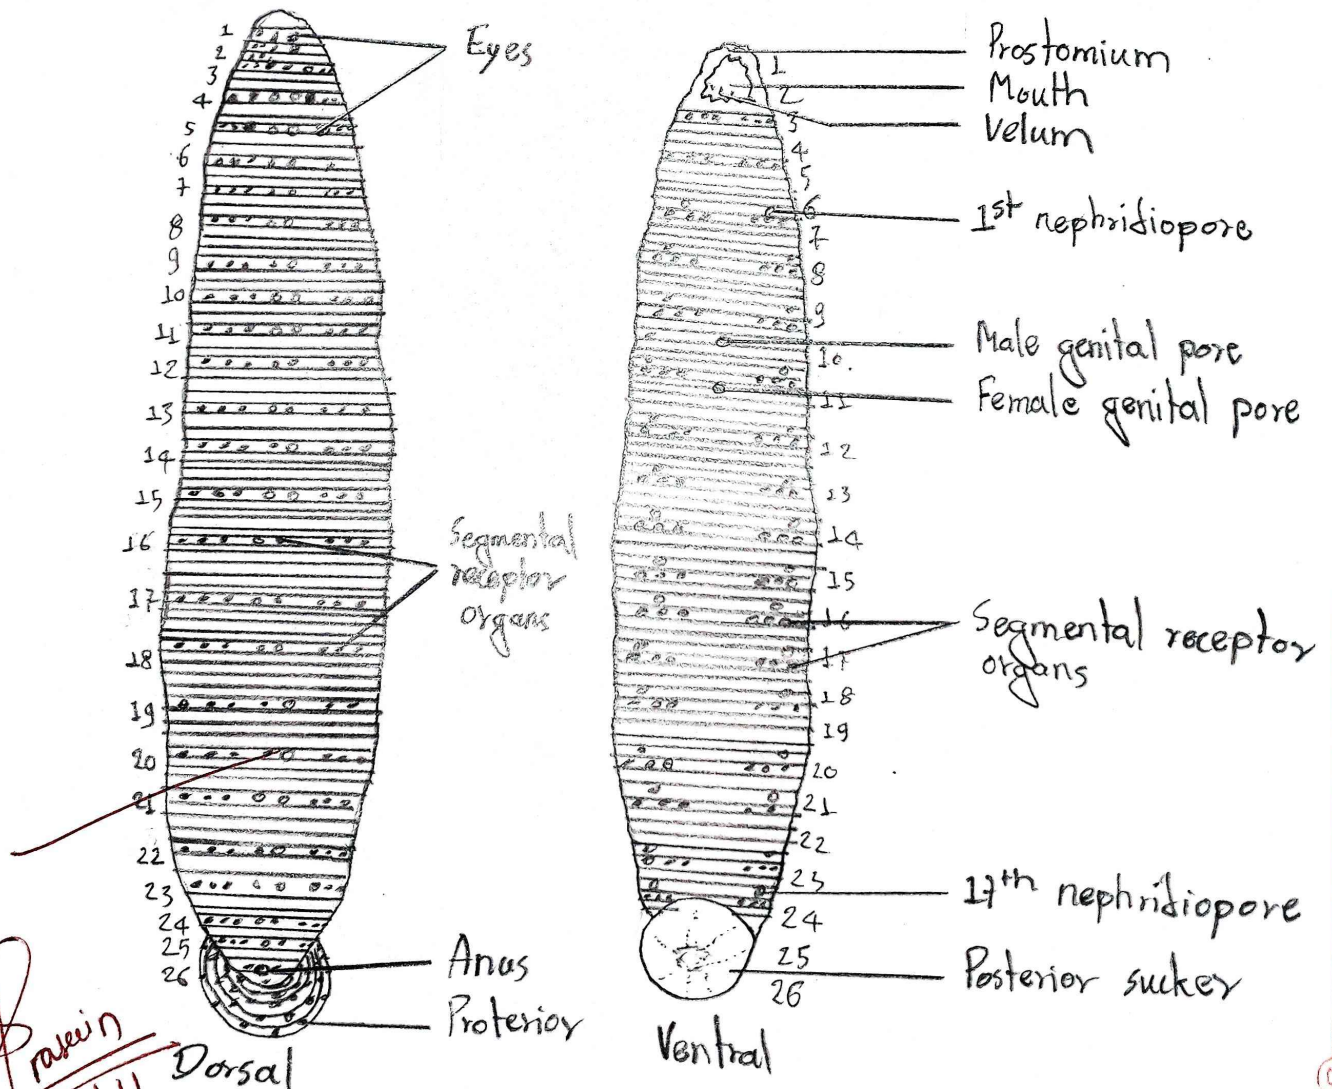 1
2
3
4
5
6
7
8
9
10
11
12
13
14
15
16
17
18
19
20
21
22
23
24
25
26
Eyes
Segmental
receptor
organs
Anus
Proterior
Dorsal
1
2
3
4
5
6
7
8
9
10.
11
12
13
14
15
16
17
18
19
20
21
22
23
24
25
26
Prostomium
Mouth
Velum
1st nephridiopore
Male genital pore
Female genital pore
Segmental receptor
organs
17th nephridiopore
Posterior sucker
Ventral